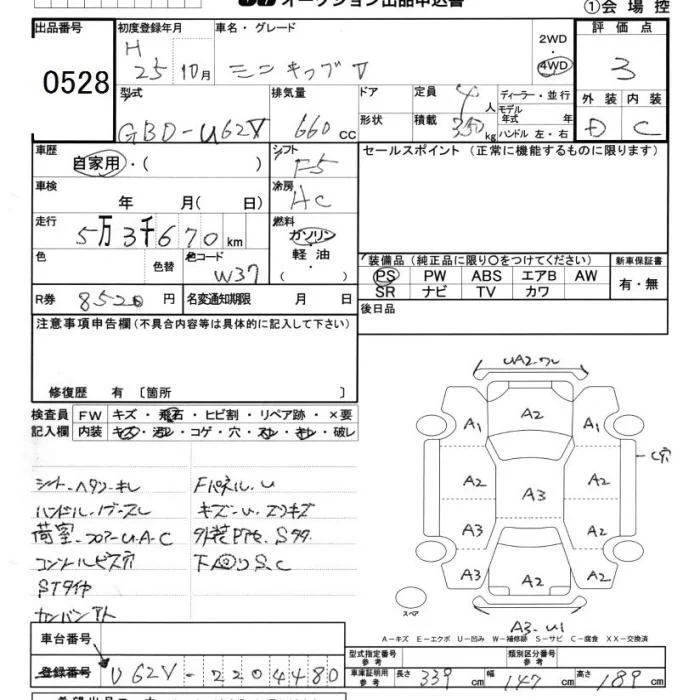 オークション出品申込書
①会場控
出品番号 0528
初度登録年月 H 25 10月
車名・グレード ミニキャブV
2WD ・ 4WD
評価点 3
型式 GBD-U62V
排気量 660cc
ドア
形状
定員 4人
積載 350kg
ディーラー・並行
モデル年式 年
ハンドル 左・右
外装 内装
D C
車歴 自家用・( )
シフト F5
セールスポイント (正常に機能するものに限ります)
車検 年 月( 日)
冷房 HC
走行 5万3千670km
燃料 ガソリン・軽油・( )
色 色替
色コード W37
装備品(純正品に限り○をつけてください)
新車保証書
PS PW ABS エアB AW
有・無
SR ナビ TV カワ
R券 8520円
名変通知期限 月 日
後日品
注意事項申告欄(不具合内容等は具体的に記入して下さい)
修復歴 有 〔箇所 〕
検査員記入欄
FW キズ・飛石・ヒビ割・リペア跡・×要
内装 キズ・汚レ・コゲ・穴・スレ・キレ・破レ
シート・ヘタリ・キレ
Fパネル.U
ハンドル・ノブ・スレ
キズ・U.エクキズ
荷室・フロアーU.A.C
下回りS.C
コンソールビス穴
STタイヤ
カンバンアト
UA2.ワレ
A1 A2 A1
C穴
A2 A3 A2
A3 A3
A3 A2 A3
スペア
A3.U1
A-キズ E-エクボ U-凹み W-補修跡 S-サビ C-腐食 XX-交換済
車台番号
登録番号
U62V-2204480
型式指定番号 参考
類別区分番号 参考
車庫証明用 参考 長さ 339cm 幅 147cm 高さ 189cm